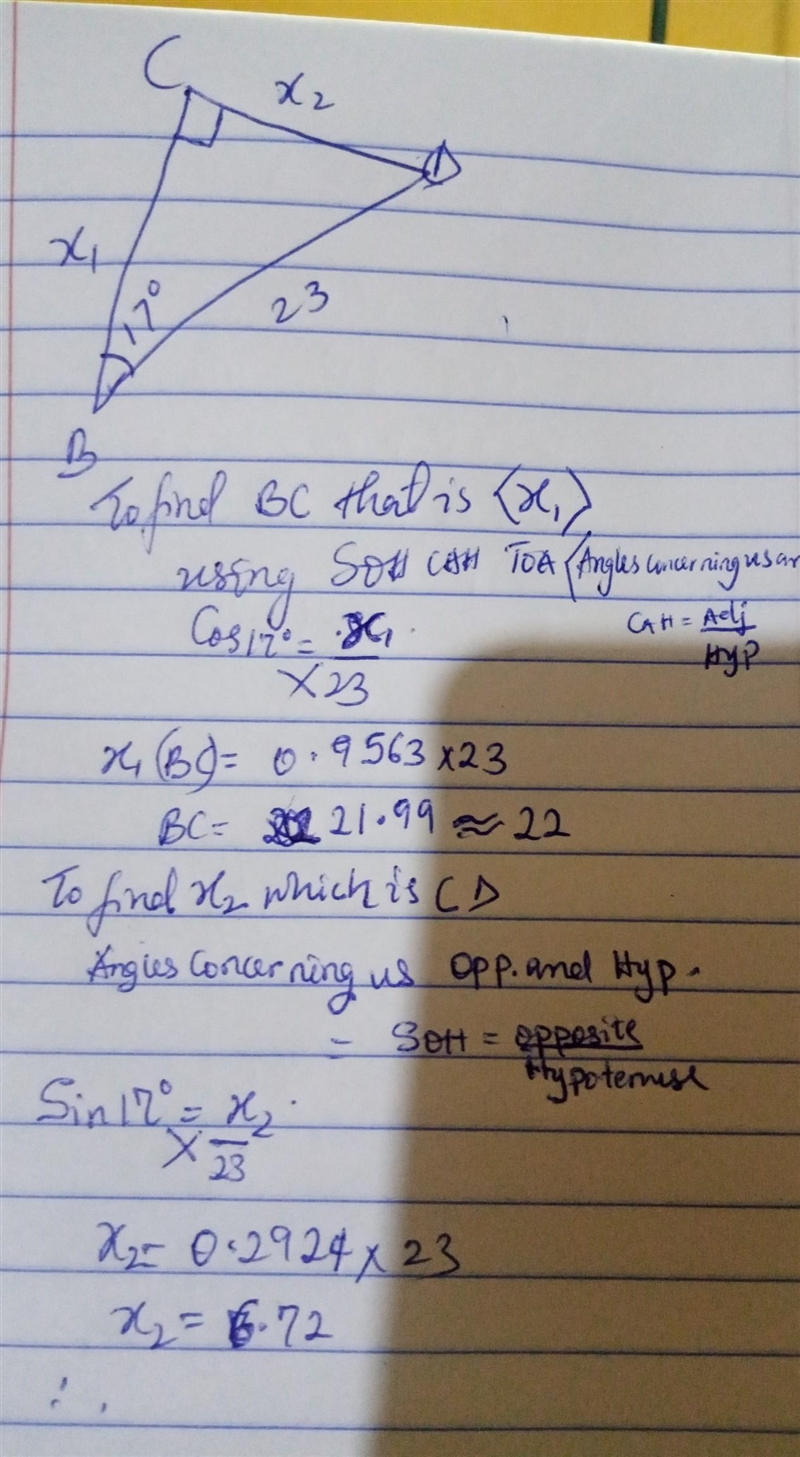 C
x₂
D
x₁
17°
23
B
To find BC that is (x₁)
using SOH CAH TOA (Angles concerning us ar
Cos17° = x₁
CAH = Adj
Hyp
× 23
x₁ (BC) = 0.9563 × 23
BC = 21.99 ≈ 22
To find x₂ which is CD
Angles Concerning us Opp. and Hyp.
= SOH = opposite
Hypotenuse
Sin17° = x₂
× 23
x₂ = 0.2924 × 23
x₂ = 6.72
∴.